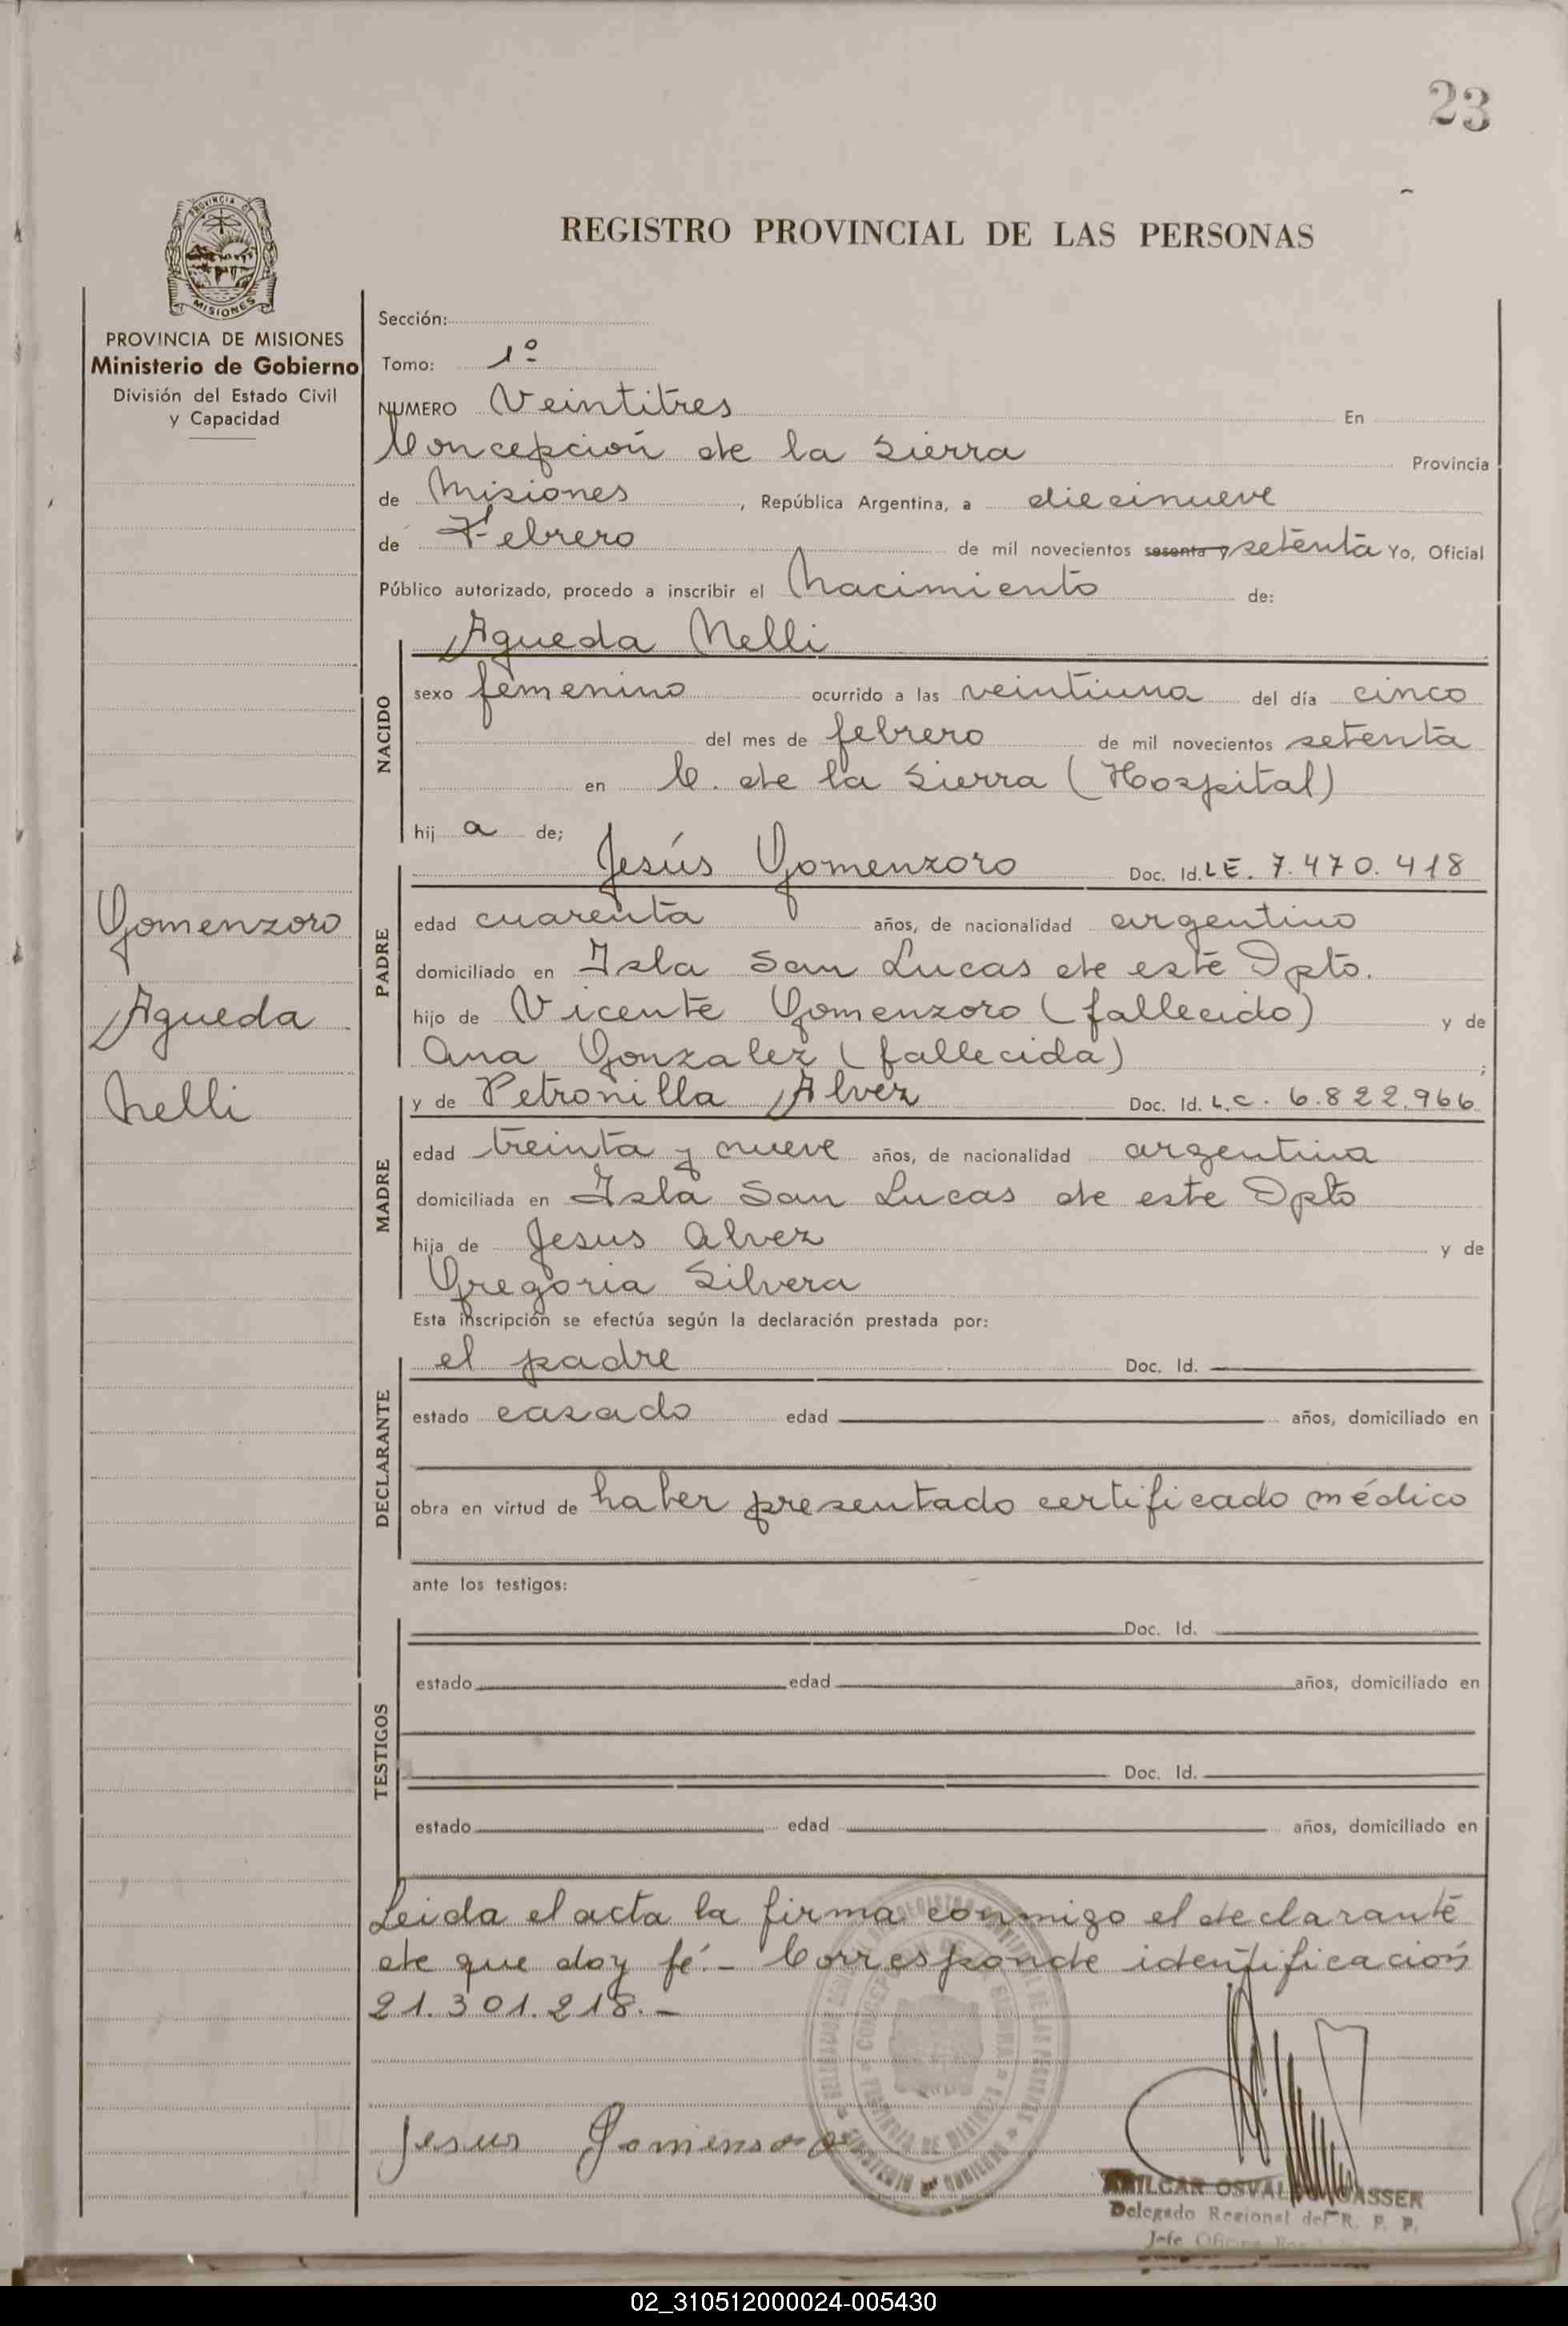 23
REGISTRO PROVINCIAL DE LAS PERSONAS
PROVINCIA DE MISIONES
Ministerio de Gobierno
División del Estado Civil
y Capacidad
Sección:
Tomo: 1º
NUMERO Veintitres En
Concepción de la Sierra Provincia
de Misiones, República Argentina, a diecinueve
de Febrero de mil novecientos sesenta y setenta Yo, Oficial
Público autorizado, procedo a inscribir el Nacimiento de:
Agueda Nelli
NACIDO
sexo femenino ocurrido a las veintiuna del día cinco
del mes de febrero de mil novecientos setenta
en C. de la Sierra (Hospital)
hij a de;
Jesús Gomenzoro Doc. Id. L.E. 7.470.418
PADRE
edad cuarenta años, de nacionalidad argentino
domiciliado en Isla San Lucas de este Dpto.
hijo de Vicente Gomenzoro (fallecido) y de
Ana Gonzalez (fallecida) ;
y de Petronilla Alvez Doc. Id. L.C. 6.822.966
MADRE
edad treinta y nueve años, de nacionalidad argentina
domiciliada en Isla San Lucas de este Dpto
hija de Jesus Alvez y de
Gregoria Silvera
Gomenzoro
Agueda
Nelli
Esta inscripción se efectúa según la declaración prestada por:
el padre Doc. Id.
DECLARANTE
estado casado edad años, domiciliado en
obra en virtud de haber presentado certificado médico
ante los testigos:
TESTIGOS
Doc. Id.
estado edad años, domiciliado en
Doc. Id.
estado edad años, domiciliado en
Leida el acta la firma conmigo el declarante
de que doy fé.- Corresponde identificación
21.301.218.-
Jesus Gomensoro
AMILCAR OSVALDO GASSER
Delegado Regional del R. P. P.
02_310512000024-005430